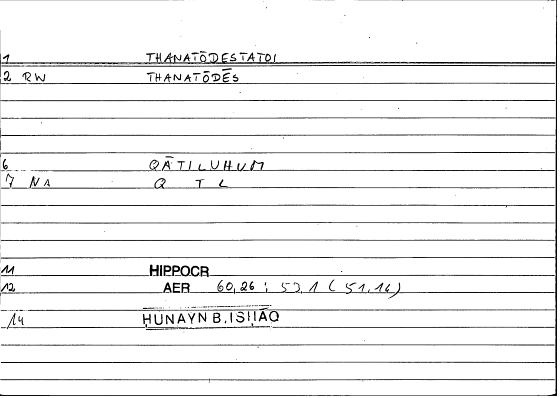 1 THANATŌDESTATOI
2 RW THANATŌDĒS
6 QĀTILUHUM
7 NA Q T L
11 HIPPOCR
12 AER 60,26 ; 53,1 (51,16)
14 ḤUNAYN B. ISḤĀQ